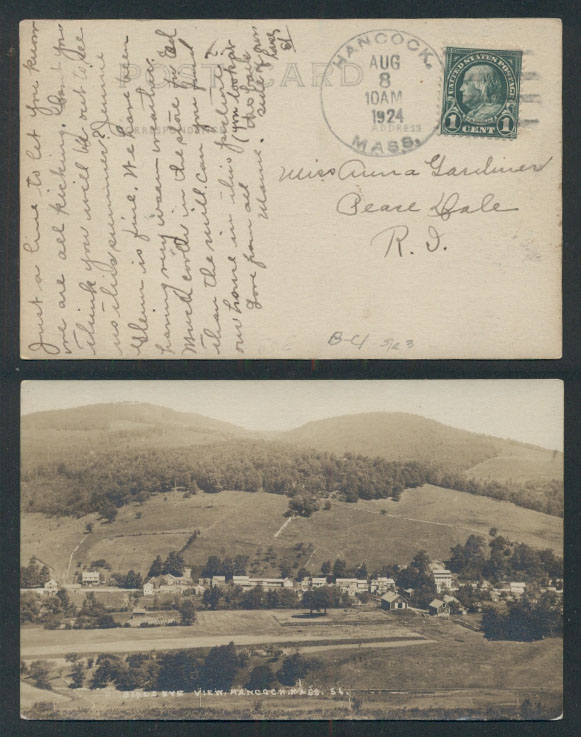 POST CARD
CORRESPONDENCE
ADDRESS
HANCOCK,
AUG
8
10AM
1924
MASS.
UNITED STATES POSTAGE
1 CENT 1
Miss Anna Gardiner
Peace Dale
R. I.
Just a line to let you know
we are all kicking. Don't you
think you will be out to see
us this summer? Jennie
Glenn is fine. We have been
having very warm weather.
Much cooler in the store for Ed
than the mill. Can you find
our home in this picture?
(you look for
the back
side of our
house)
Love from all
Mame.
B-4 5/23
BIRDS EYE VIEW. HANCOCK, MASS. 54.